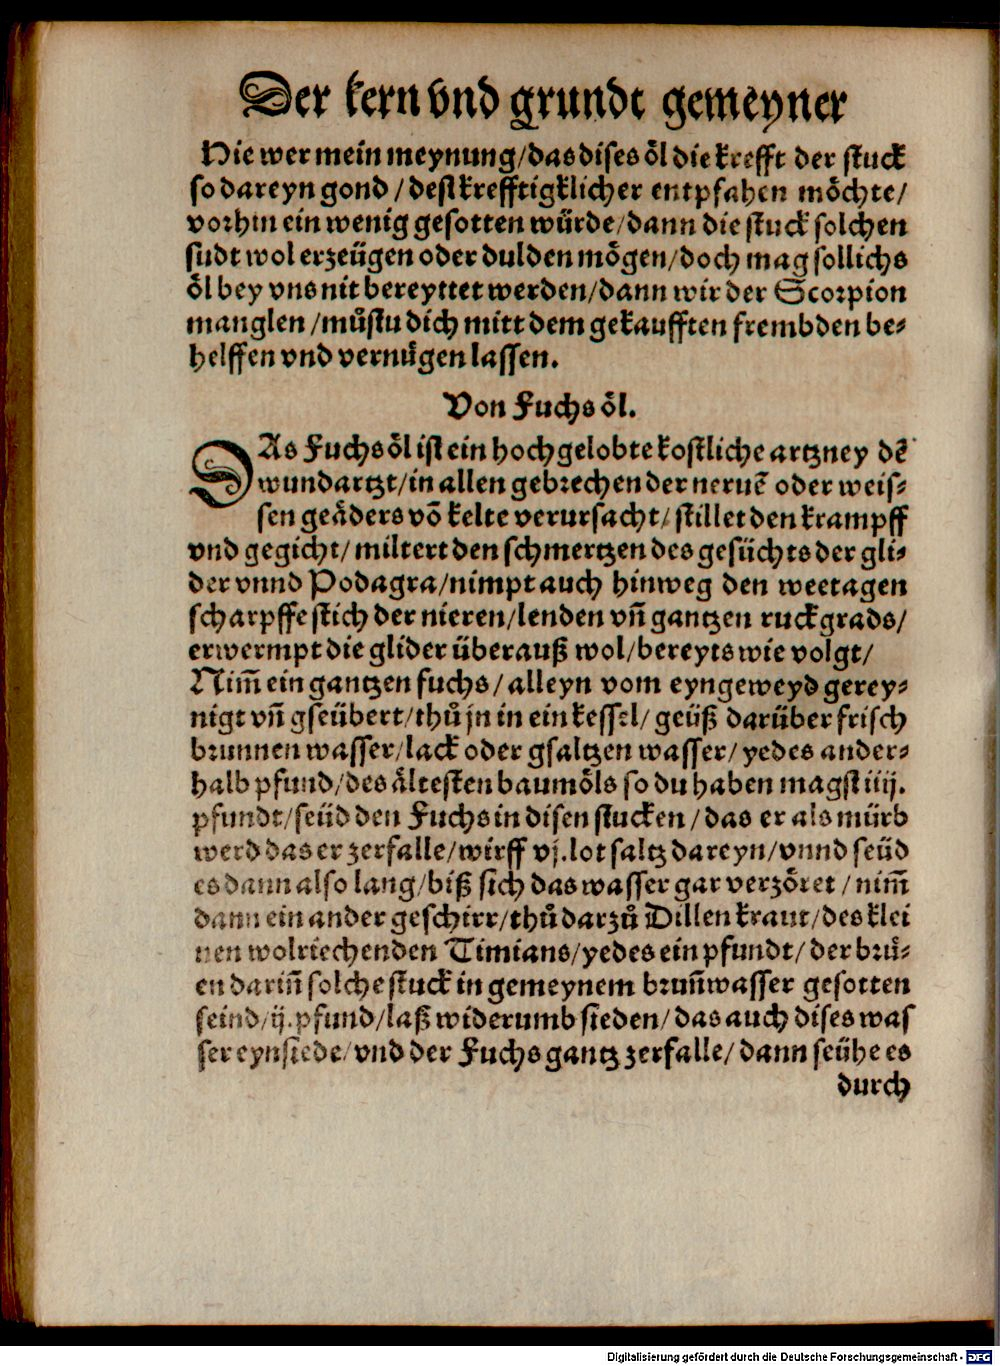 Der kern vnd grundt gemeyner
Hie wer mein meynung/das dises öl die krefft der stuck
so dareyn gond / dest krefftigklicher entpfahen möchte/
vorhin ein wenig gesotten würde/dann die stuck solchen
sudt wol erzeügen oder dulden mögen/doch mag sollichs
öl bey vns nit bereyttet werden/dann wir der Scorpion
manglen /můstu dich mitt dem gekaufften frembden be-
helffen vnd vernügen lassen.
Von Fuchs öl.
DAs Fuchs öl ist ein hochgelobte kostliche artzney dē
wundartzt/in allen gebrechen der neruē oder weis-
sen geäders vō kelte verursacht/ stillet den krampff
vnd gegicht/ miltert den schmertzen des gesüchts der gli-
der vnnd Podagra/nimpt auch hinweg den weetagen
scharpffe stich der nieren/lenden vñ gantzen ruckgrads/
erwermpt die glider überauß wol/bereyts wie volgt/
Nim̄ ein gantzen fuchs/ alleyn vom eyngeweyd gerey-
nigt vñ gseübert/thů jn in ein kessel/ geüß darüber frisch
brunnen wasser/lack oder gsaltzen wasser/ yedes ander-
halb pfund/des ältesten baumöls so du haben magst iiij.
pfundt/seüd den Fuchs in disen stucken / das er als mürb
werd das er zerfalle/wirff vj.lot saltz dareyn/vnnd seüd
es dann also lang/biß sich das wasser gar verzöret / nim̄
dann ein ander geschirr/thů darzů Dillen kraut/des klei
nen wolriechenden Timians/yedes ein pfundt/ der brü-
en dariñ solche stuck in gemeynem bruñwasser gesotten
seind/ij.pfund/laß widerumb sieden/das auch dises was
ser eynsiede/vnd der Fuchs gantz zerfalle/ dann seühe es
durch
Digitalisierung gefördert durch die Deutsche Forschungsgemeinschaft - DFG